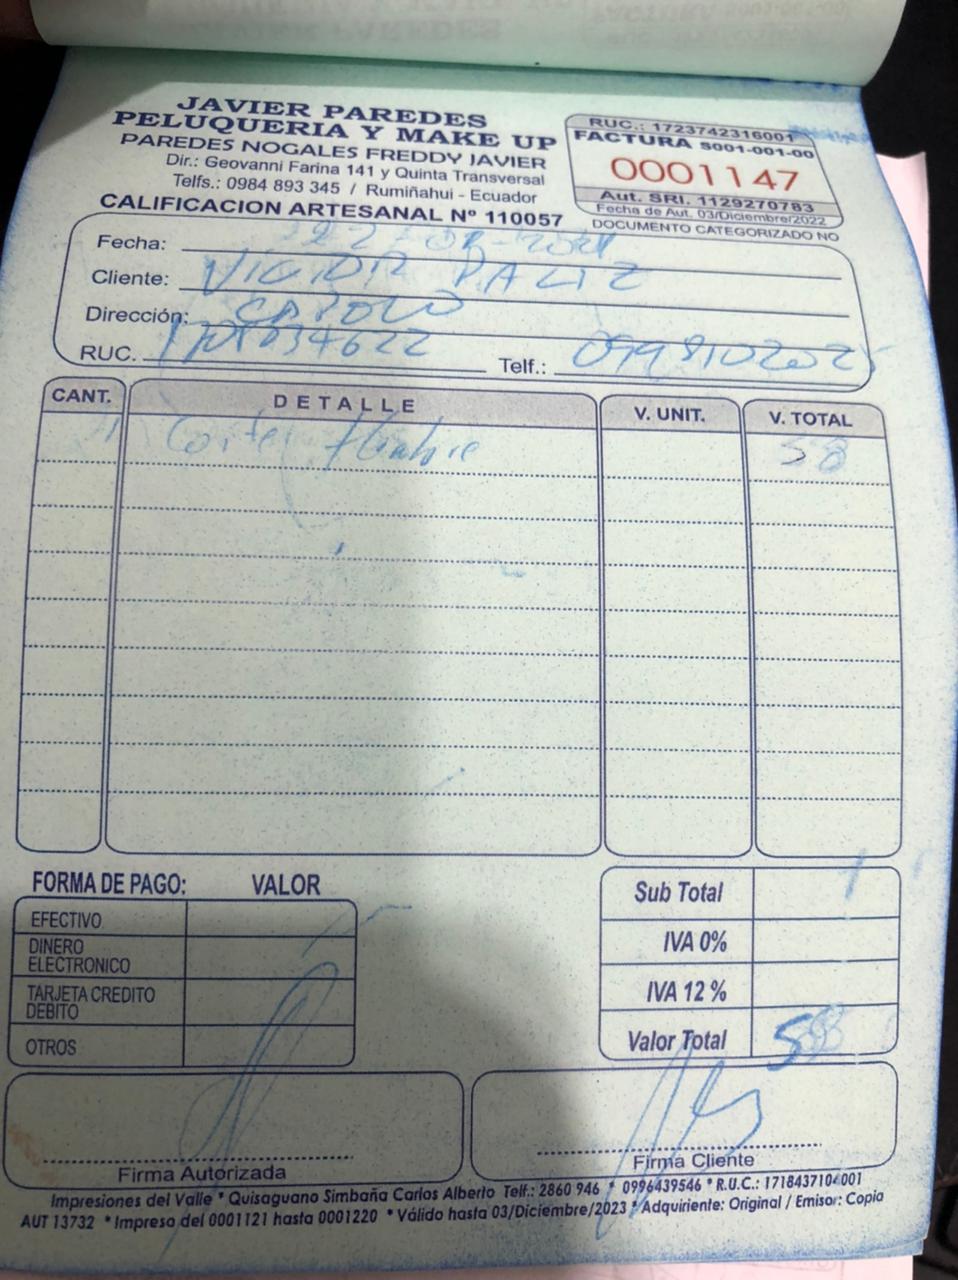 JAVIER PAREDES
PELUQUERIA Y MAKE UP
PAREDES NOGALES FREDDY JAVIER
Dir.: Geovanni Farina 141 y Quinta Transversal
Telfs.: 0984 893 345 / Rumiñahui - Ecuador
CALIFICACION ARTESANAL Nº 110057
RUC.: 1723742316001
FACTURA S001-001-00
0001147
Aut. SRI. 1129270783
Fecha de Aut. 03/Diciembre/2022
DOCUMENTO CATEGORIZADO NO
Fecha:
Cliente: VICTOR PALIZ
Dirección: CAPOLO
RUC. 1701034622 Telf.: 0998102025
CANT. DETALLE V. UNIT. V. TOTAL
1 Corte Hombre 58
FORMA DE PAGO: VALOR
EFECTIVO
DINERO
ELECTRONICO
TARJETA CREDITO
DEBITO
OTROS
Sub Total
IVA 0%
IVA 12 %
Valor Total 58
Firma Autorizada
Firma Cliente
Impresiones del Valle * Quisaguano Simbaña Carlos Alberto Telf.: 2860 946 * 0996439546 * R.U.C.: 1718437104001
AUT 13732 * Impreso del 0001121 hasta 0001220 * Válido hasta 03/Diciembre/2023 * Adquiriente: Original / Emisor: Copia